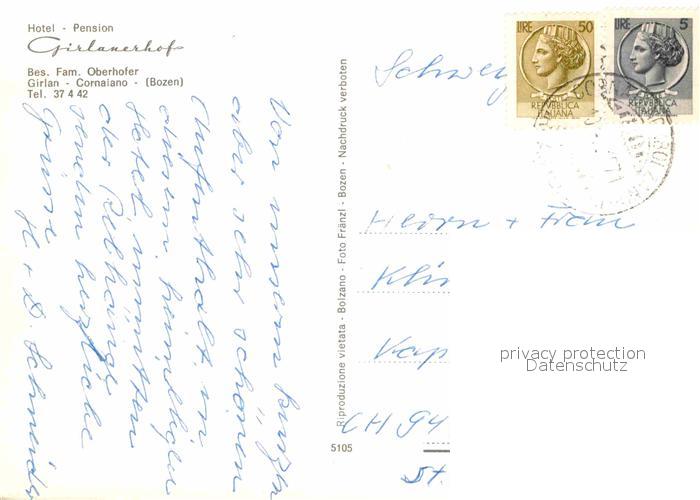 Hotel - Pension
Girlanerhof
Bes. Fam. Oberhofer
Girlan - Cornaiano - (Bozen)
Tel. 37 4 42
Von unserem kurzen
aber sehr schönen
Aufenthalt in
diesem heimeligen
Hotel inmitten
der Rebhänge
senden herzliche
Grüsse
H + D. Schneider
Riproduzione vietata - Bolzano - Foto Fränzl - Bozen - Nachdruck verboten
5105
LIRE 50
REPVBBLICA
ITALIANA
LIRE 5
REPVBBLICA
ITALIANA
Schweiz
Herrn + Frau
Kli
Kap
CH 94
St.
privacy protection
Datenschutz